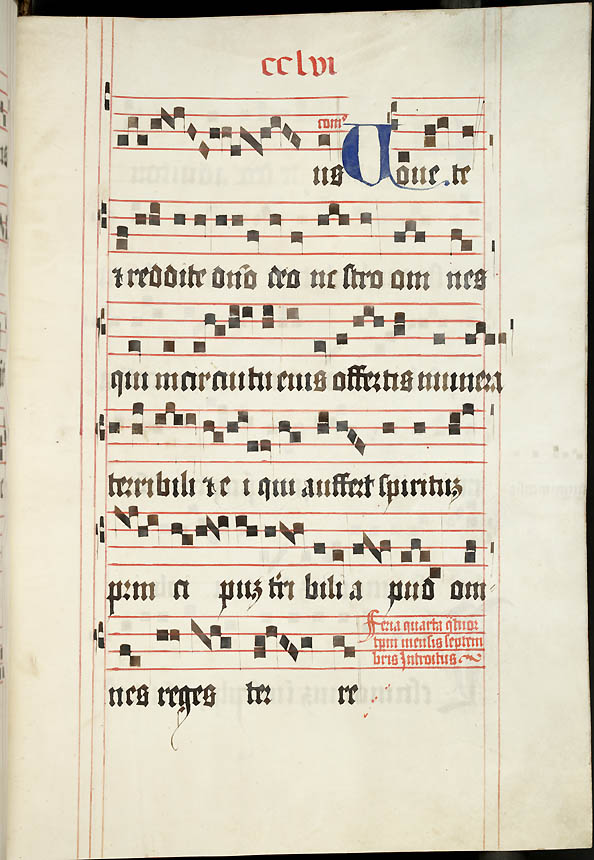 cclvi
comº
us Voue te
⁊ reddite dño deo nostro om nes
qui in circuitu eius offertis munera
terribili ⁊ e i qui auffert spirituz
prin ci puz tribili a pud om
nes reges ter re
Feria quarta qtuor
tpm mensis septem
bris Introitus